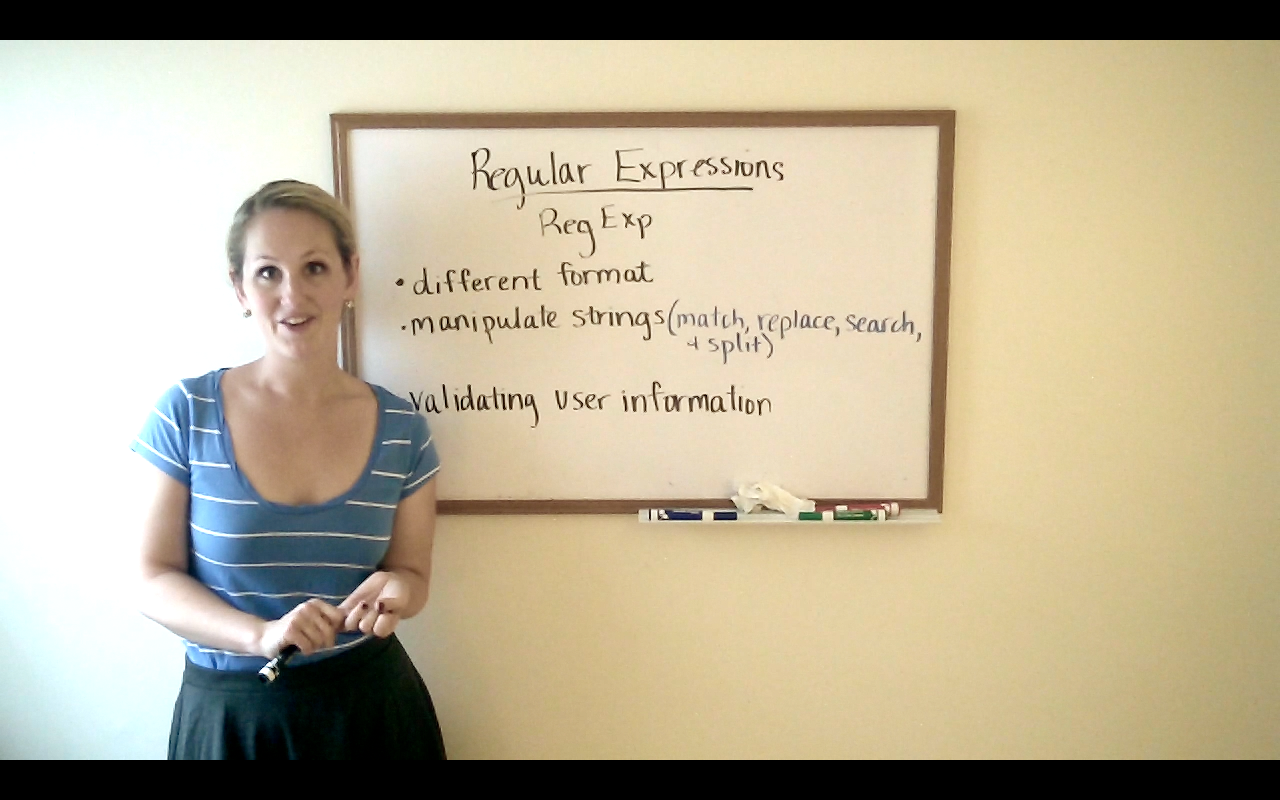 Regular Expressions
RegExp
• different format
• manipulate strings (match, replace, search,
+ split)
validating user information